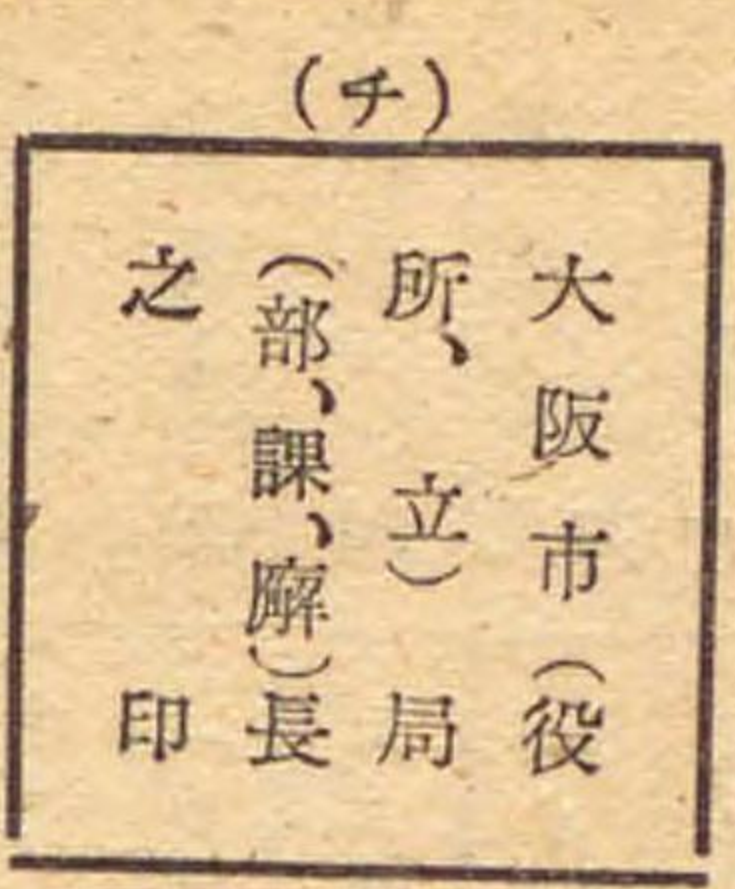 （チ）
大阪市（役
所、立）局
（部、課、廨）長
之印